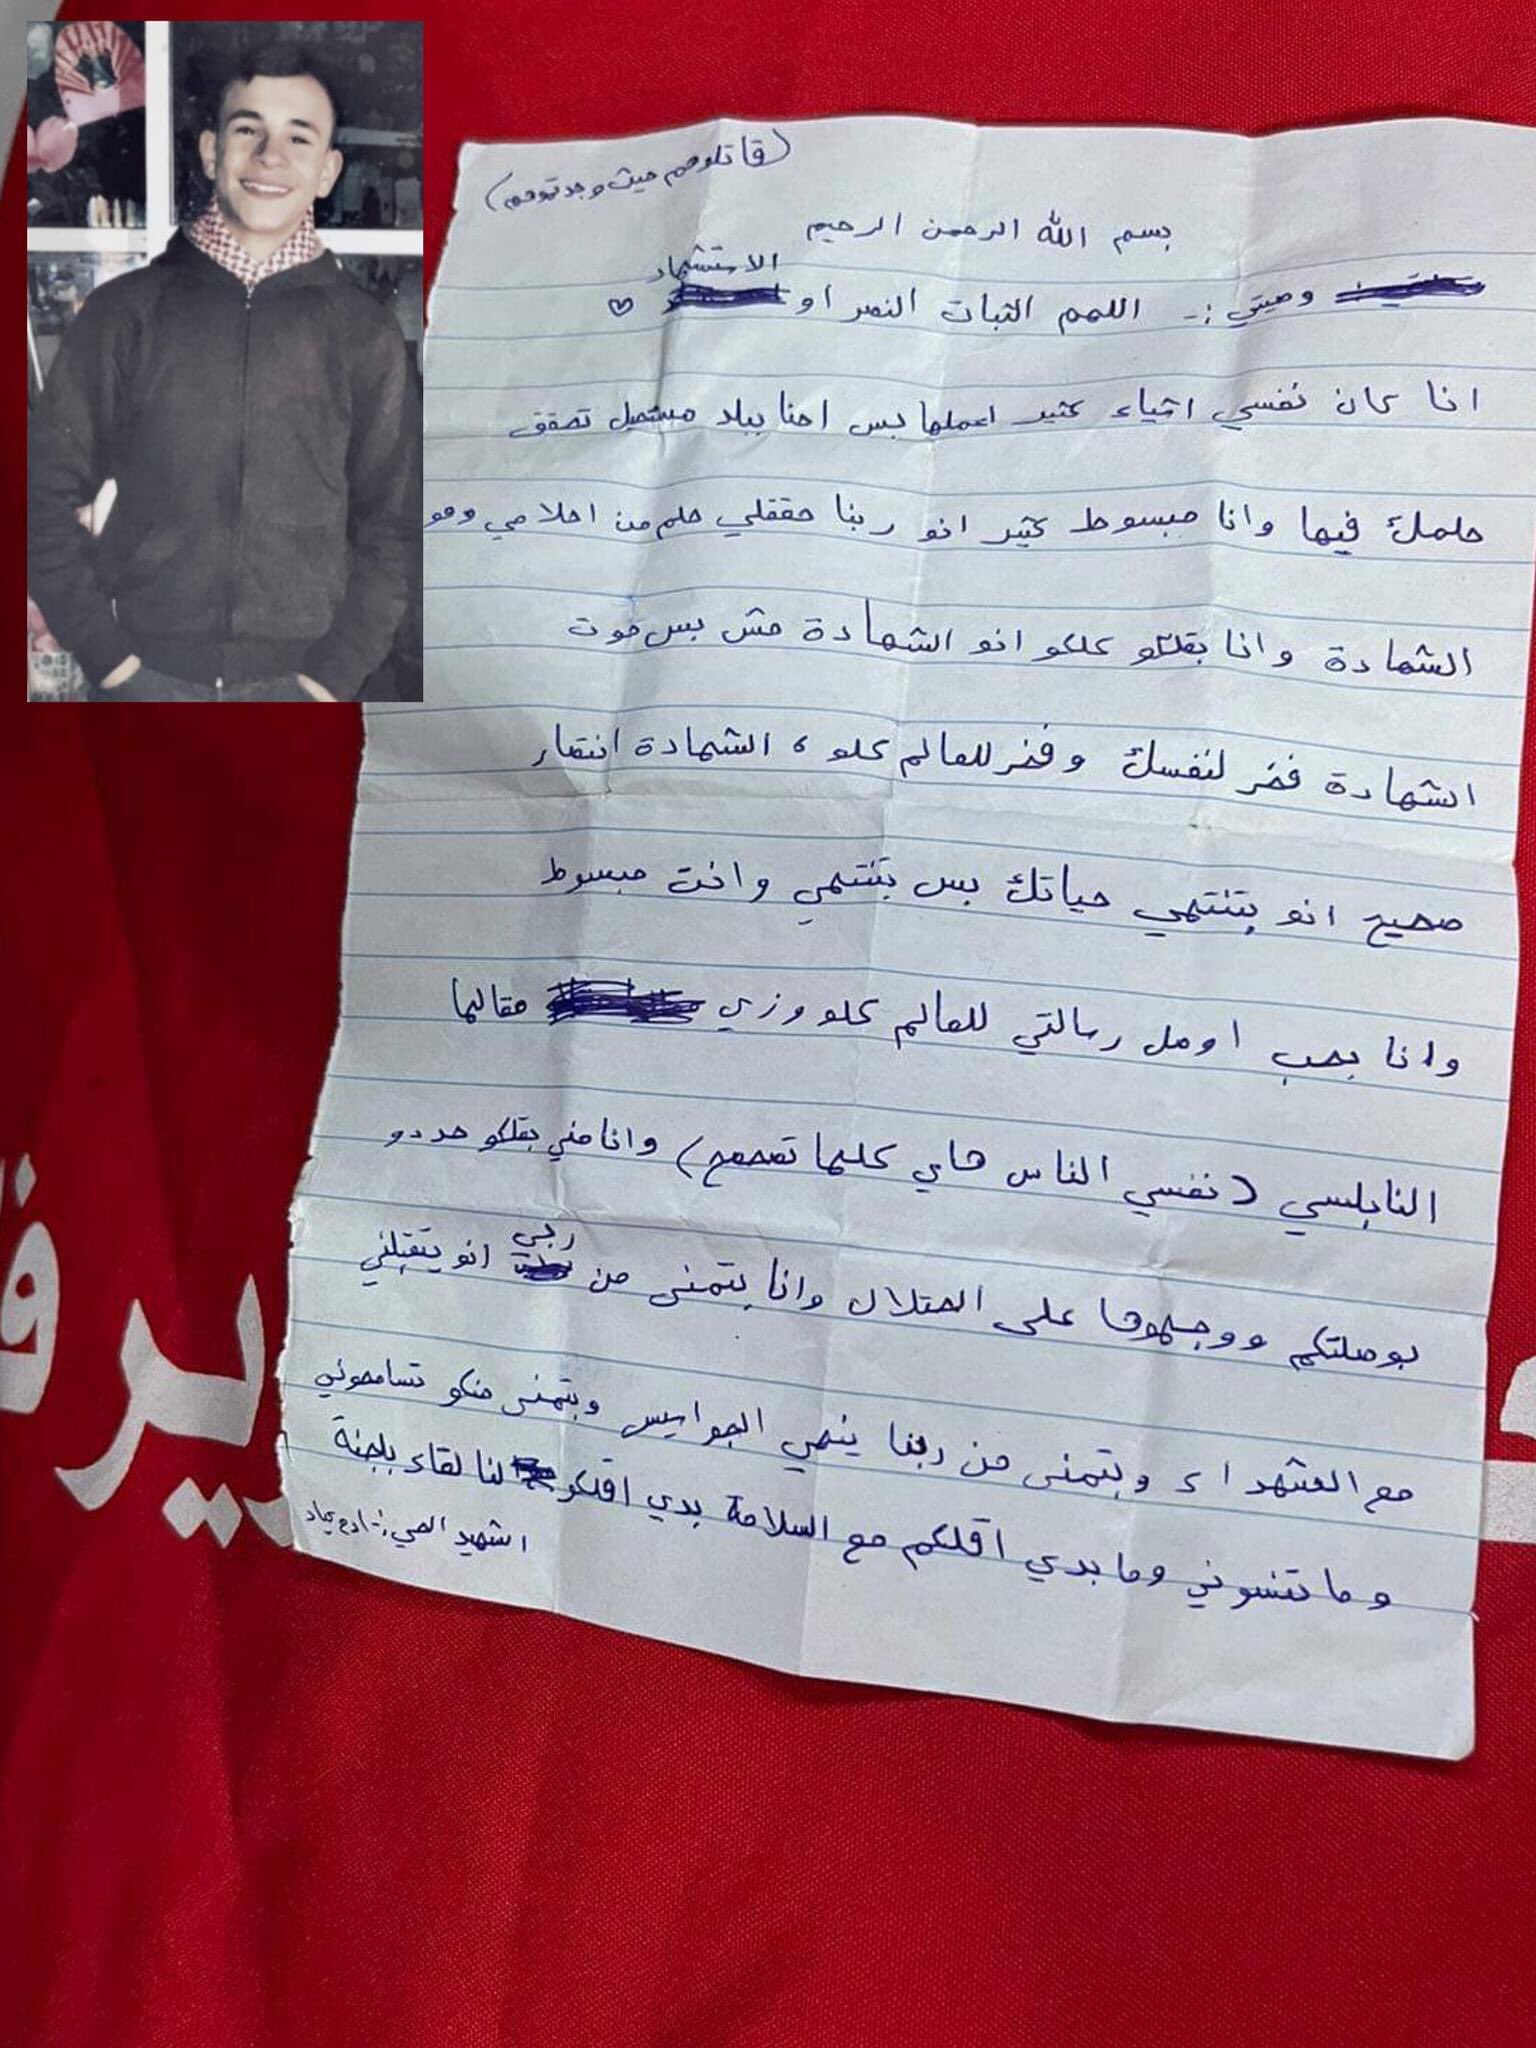 (قاتلوهم حيث وجدتموهم)
بسم الله الرحمن الرحيم
الاستشهاد
وصيتي :- اللهم الثبات النصر او ♡
انا كان نفسي اشياء كثير اعملها بس احنا ببلد مستحيل تحقق
حلمك فيها وانا مبسوط كثير انو ربنا حققلي حلم من احلامي وهو
الشهادة وانا بقلكو كلكو انو الشهادة مش بس موت
الشهادة فخر لنفسك وفخر للعالم كلو ، الشهادة انتصار
صحيح انو بتنتهي حياتك بس بتنتهي وانت مبسوط
وانا بحب اوصل رسالتي للعالم كلو وزي مقالها
النابلسي (نفسي الناس هاي كلها تصحصح) وانا مني بقلكو حددو
ربي
بوصلتكم ووجهوها على المحتلال وانا بتمنى من انو يتقبلني
مع الشهداء وبتمنى من ربنا ينهي الجواسيس وبتمنى منكو تسامحوني
وما تنسوني وما بدي اقلكم مع السلامة بدي اقلكو لنا لقاء بلجنة
الشهيد الحي :- ادم عياد